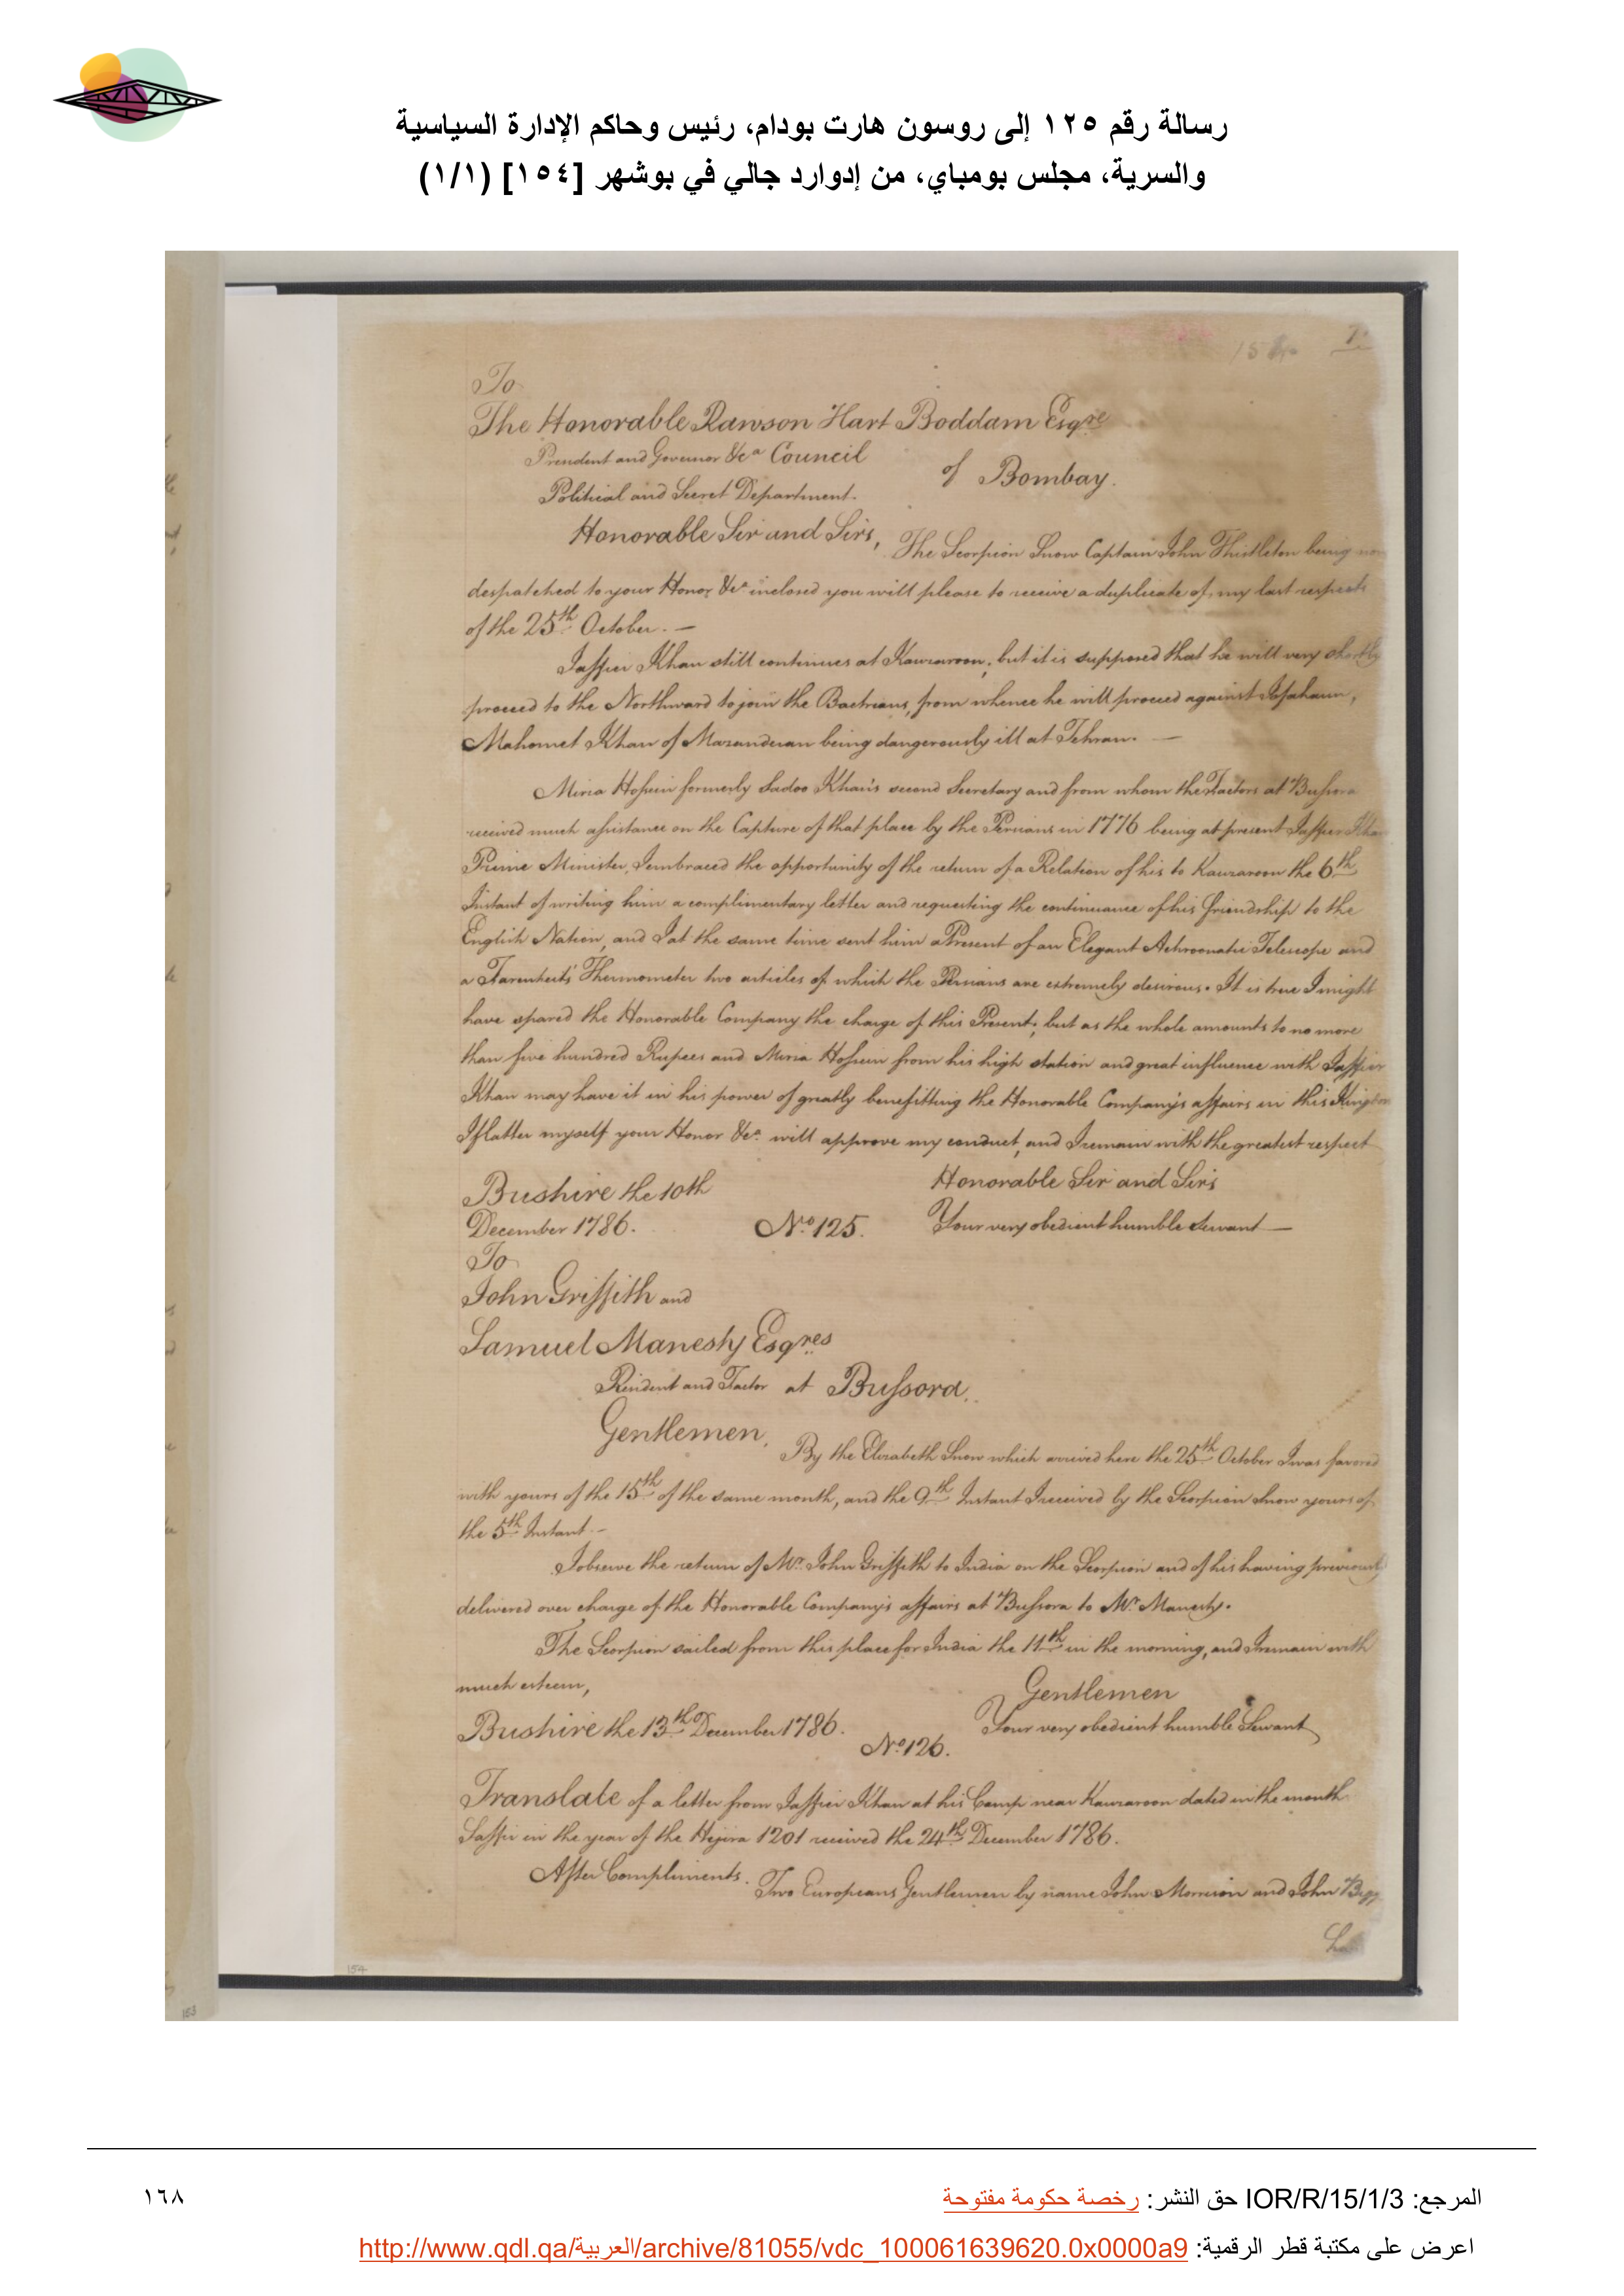 رسالة رقم ١٢٥ إلى روسون هارت بودام، رئيس وحاكم الإدارة السياسية
والسرية، مجلس بومباي، من إدوارد جالي في بوشهر [١٥٤] (١/١)
To
The Honorable Rawson Hart Boddam Esqre
President and Governor &ca Council
of Bombay.
Political and Secret Department.
Honorable Sir and Sirs,
The Scorpion Snow Captain John Thistleton being now
despatched to your Honor &ca inclosed you will please to receive a duplicate of my last respects
of the 25th October. —
Jaffier Khan still continues at Kauzaroon, but it is supposed that he will very shortly
proceed to the Northward to join the Bactrians, from whence he will proceed against Ispahaun,
Mahomet Khan of Mazanderan being dangerously ill at Tehran. —
Mirza Hossein formerly Sadoo Khan's second Secretary and from whom the Factors at Bussora
received much assistance on the Capture of that place by the Persians in 1776 being at present Jaffier Khan
Prime Minister, I embraced the opportunity of the return of a Relation of his to Kauzaroon the 6th
Instant of writing him a complimentary letter and requesting the continuance of his friendship to the
English Nation, and I at the same time sent him a Present of an Elegant Achroonatic Telescope and
a Farenheits Thermometer two articles of which the Persians are extremely desirous. It is true I might
have spared the Honorable Company the charge of this Present, but as the whole amounts to no more
than five hundred Rupees and Mirza Hossein from his high station and great influence with Jaffier
Khan may have it in his power of greatly benefitting the Honorable Company's affairs in this Kingdom
I flatter myself your Honor &ca will approve my conduct, and I remain with the greatest respect
Honorable Sir and Sirs
Bushire the 10th
December 1786.
No. 125.
Your very obedient humble Servant —
To
John Griffith and
Samuel Manesty Esqres
Resident and Factor at Bussora.
Gentlemen,
By the Elizabeth Snow which arrived here the 25th October I was favored
with yours of the 15th of the same month, and the 9th Instant I received by the Scorpion Snow yours of
the 5th Instant —
I observe the return of Mr. John Griffith to India on the Scorpion and of his having previously
delivered over charge of the Honorable Company's affairs at Bussora to Mr. Manesty.
The Scorpion sailed from this place for India the 11th in the morning, and I remain with
much esteem,
Gentlemen
Bushire the 13th December 1786.
Your very obedient humble Servant
No. 126.
Translate of a letter from Jaffier Khan at his Camp near Kauzaroon dated in the month
Saffir in the year of the Hejira 1201 received the 24th December 1786.
After Compliments.
Two Europeans Gentlemen by name John Morrison and John
154
153
المرجع: IOR/R/15/1/3 حق النشر: رخصة حكومة مفتوحة
١٦٨
اعرض على مكتبة قطر الرقمية: http://www.qdl.qa/العربية/archive/81055/vdc_100061639620.0x0000a9